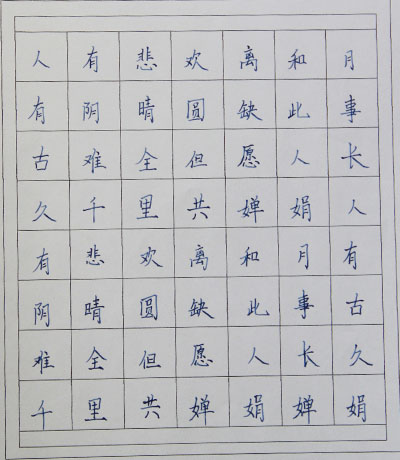 人有悲欢离和月
有阴晴圆缺此事
古难全但愿人长
久千里共婵娟人
有悲欢离和月有
阴晴圆缺此事古
难全但愿人长久
千里共婵娟婵娟